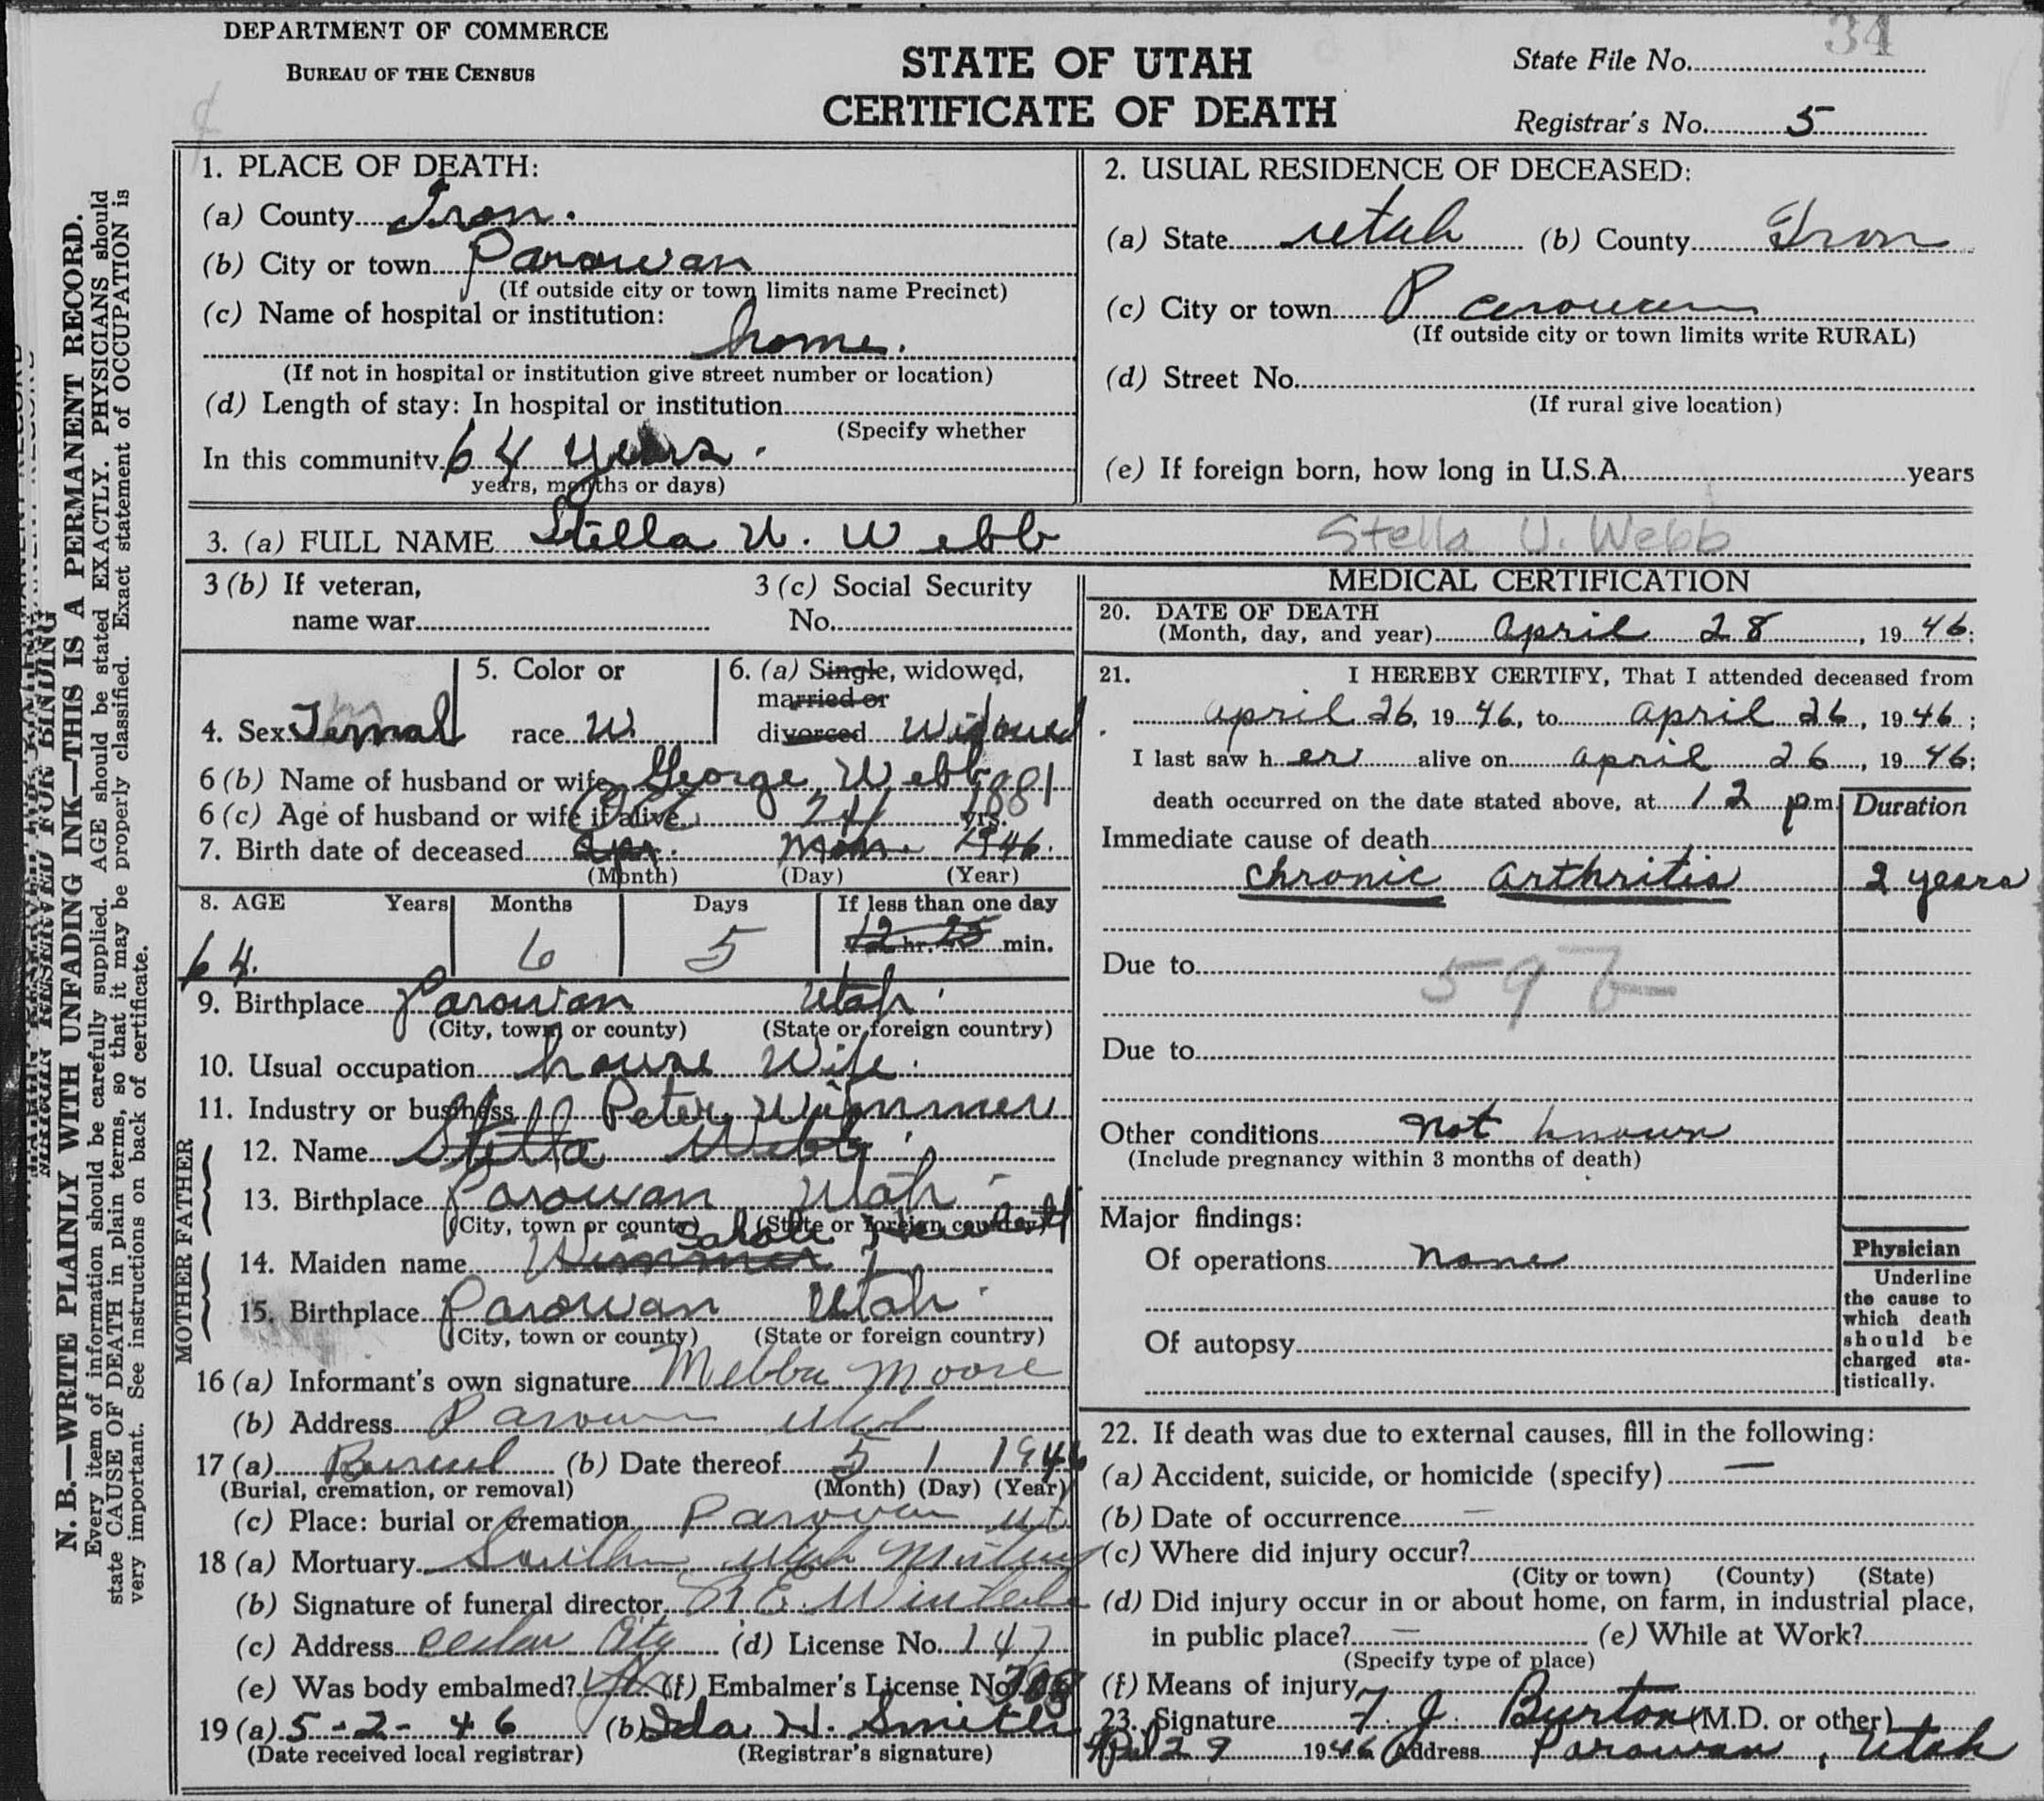 DEPARTMENT OF COMMERCE
BUREAU OF THE CENSUS
STATE OF UTAH
CERTIFICATE OF DEATH
34
State File No.
Registrar's No. 5
N. B.—WRITE PLAINLY WITH UNFADING INK—THIS IS A PERMANENT RECORD.
Every item of information should be carefully supplied. AGE should be stated EXACTLY. PHYSICIANS should
state CAUSE OF DEATH in plain terms, so that it may be properly classified. Exact statement of OCCUPATION is
very important. See instructions on back of certificate.
1. PLACE OF DEATH:
(a) County Iron.
(b) City or town Parowan
(If outside city or town limits name Precinct)
(c) Name of hospital or institution:
home.
(If not in hospital or institution give street number or location)
(d) Length of stay: In hospital or institution
(Specify whether
In this community 64 years.
years, months or days)
2. USUAL RESIDENCE OF DECEASED:
(a) State Utah (b) County Iron
(c) City or town Parowan
(If outside city or town limits write RURAL)
(d) Street No.
(If rural give location)
(e) If foreign born, how long in U.S.A. years
3. (a) FULL NAME Stella U. Webb Stella U. Webb
3 (b) If veteran,
name war
3 (c) Social Security
No.
4. Sex Femal
5. Color or
race W.
6. (a) Single, widowed,
married or
divorced Widowed
6 (b) Name of husband or wife George Webb
6 (c) Age of husband or wife if alive yrs.
Oct 24 1881
7. Birth date of deceased Apr. Mon. 1946.
(Month) (Day) (Year)
8. AGE Years Months Days If less than one day
64. 6 5 12 hr. 25 min.
9. Birthplace Parowan Utah.
(City, town or county) (State or foreign country)
10. Usual occupation house Wife.
11. Industry or business
Peter Wimmer
FATHER
12. Name Stella Webb.
13. Birthplace Parowan Utah
(City, town or county) (State or foreign country)
MOTHER
14. Maiden name Wimmer
15. Birthplace Parowan Utah.
(City, town or county) (State or foreign country)
16 (a) Informant's own signature Melba Moore
(b) Address Parowan Utah
17 (a) Burial (b) Date thereof 5 1 1946
(Burial, cremation, or removal) (Month) (Day) (Year)
(c) Place: burial or cremation Parowan Ut
18 (a) Mortuary Southern Utah Mortuary
(b) Signature of funeral director
(c) Address Cedar City (d) License No. 147
(e) Was body embalmed? Yes (f) Embalmer's License No.
19 (a) 5-2-46 (b) Ida H. Smith
(Date received local registrar) (Registrar's signature)
MEDICAL CERTIFICATION
20. DATE OF DEATH
(Month, day, and year) April 28, 1946;
21. I HEREBY CERTIFY, That I attended deceased from
april 26, 1946, to april 26, 1946;
I last saw her alive on april 26, 1946;
death occurred on the date stated above, at 12 p.m.
Duration
Immediate cause of death
chronic arthritis 2 years
Due to
59b
Due to
Other conditions not known
(Include pregnancy within 3 months of death)
Major findings:
Of operations none
Of autopsy
Physician
Underline
the cause to
which death
should be
charged sta-
tistically.
22. If death was due to external causes, fill in the following:
(a) Accident, suicide, or homicide (specify) —
(b) Date of occurrence —
(c) Where did injury occur?
(City or town) (County) (State)
(d) Did injury occur in or about home, on farm, in industrial place,
in public place? — (e) While at Work?
(Specify type of place)
(f) Means of injury
23. Signature F. J. Burton (M.D. or other)
Apl 29 1946 Address Parowan, Utah